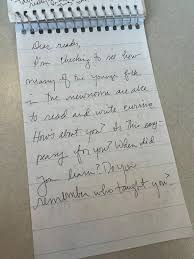 Dear reader,
I'm checking to see how
many of the younger folk
in the newsroom are able
to read and write cursive.
How about you? Is this easy-
peasy for you? When did
you learn? Do you
remember who taught you?